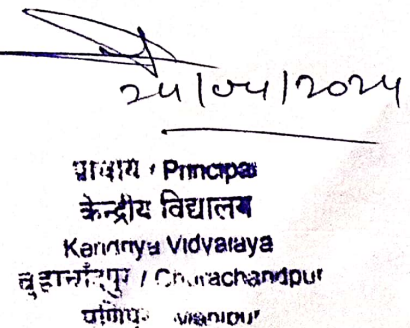 24/04/2024
प्राचार्य / Principal
केन्द्रीय विद्यालय
Kendriya Vidyalaya
/ Churachandpur
मणिपुर Manipur